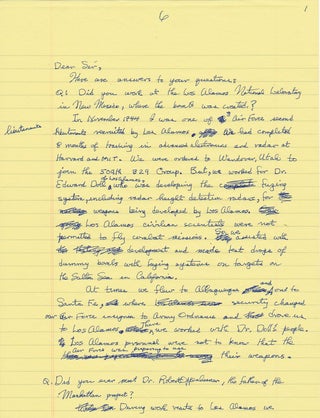 6
1
Dear Sir,
Here are answers to your questions:
Q: Did you work at the Los Alamos National Laboratory
in New Mexico, where the bomb was created?
In November 1944 I was one of Air Force second
lieutenants
lieutenants recruited by Los Alamos. We had completed
8 months of training in advanced electronics and radar at
Harvard and MIT. We were ordered to Wendover, Utah to
join the 509th B29 Group. But, we worked for Dr.
Edward Doll of Los Alamos, who was developing the fuzing
system, including radar height detection radars, for
weapons being developed by Los Alamos.
Los Alamos civilian scientists were not
permitted to fly combat missions. So we assisted with
development and made test drops of
dummy bombs with fuzing systems on targets on
the Salton Sea in California.
At times we flew to Albuquerque and on to
Santa Fe, where security changed
our Air Force insignia to Army Ordnance and drove us
to Los Alamos. There we worked with Dr. Doll's people.
Los Alamos personnel were not to know that the
Air Force was preparing to use their weapons.
Q. Did you ever meet Dr. Robert Oppenheimer, the father of the
Manhattan project?
During work visits to Los Alamos we